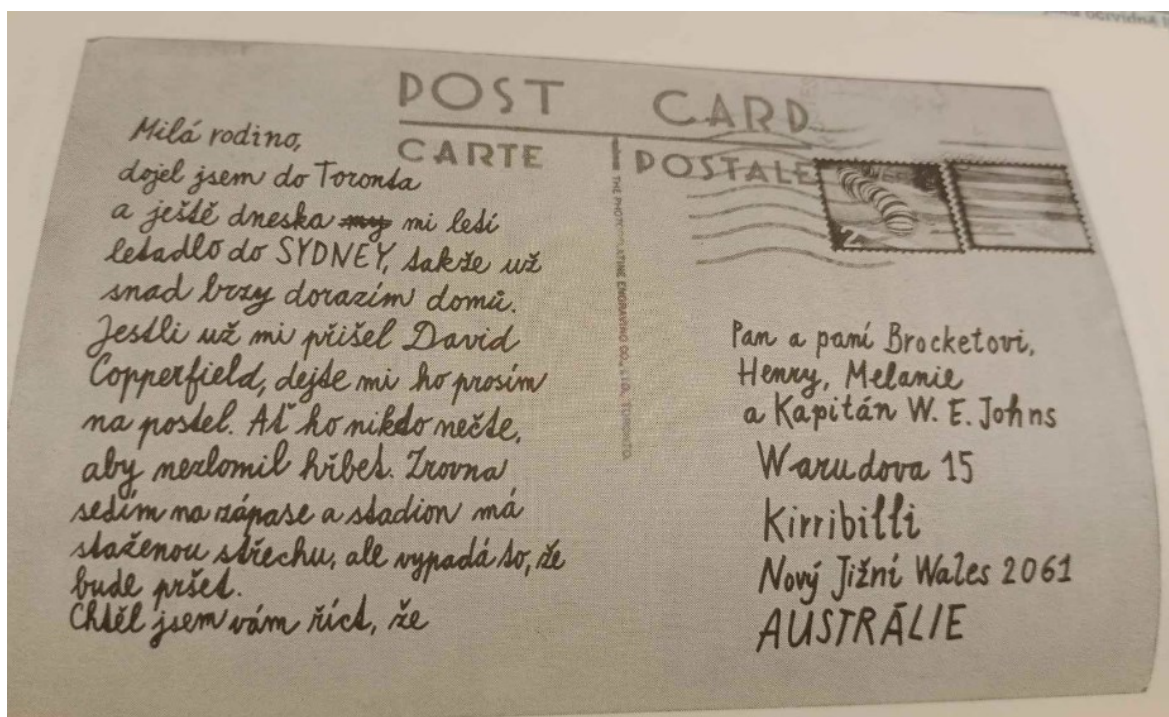 POST CARD
CARTE POSTALE
Milá rodino,
dojel jsem do Toronta
a ještě dneska my mi letí
letadlo do SYDNEY, takže už
snad brzy dorazím domů.
Jestli už mi přišel David
Copperfield, dejte mi ho prosím
na postel. Ať ho nikdo nečte,
aby nezlomil hřbet. Zrovna
sedím na zápase a stadion má
staženou střechu, ale vypadá to, že
bude pršet.
Chtěl jsem vám říct, že
Pan a paní Brocketovi,
Henry, Melanie
a Kapitán W. E. Johns
Warudova 15
Kirribilli
Nový Jižní Wales 2061
AUSTRÁLIE